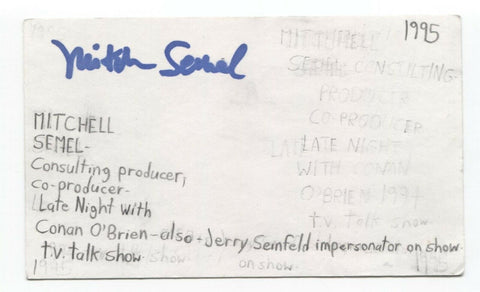 1995
Mitch Semel
MITCHELL
SEMEL-
Consulting producer,
co-producer-
Late Night With
Conan O'Brien-also-Jerry Seinfeld impersonator on show.
t.v. talk show.
MITCHELL
SEMEL CONSULTING
PRODUCER
CO-PRODUCER
LATE NIGHT
WITH CONAN
O'BRIEN 1994
t.v. talk show
on show.
1995
1995